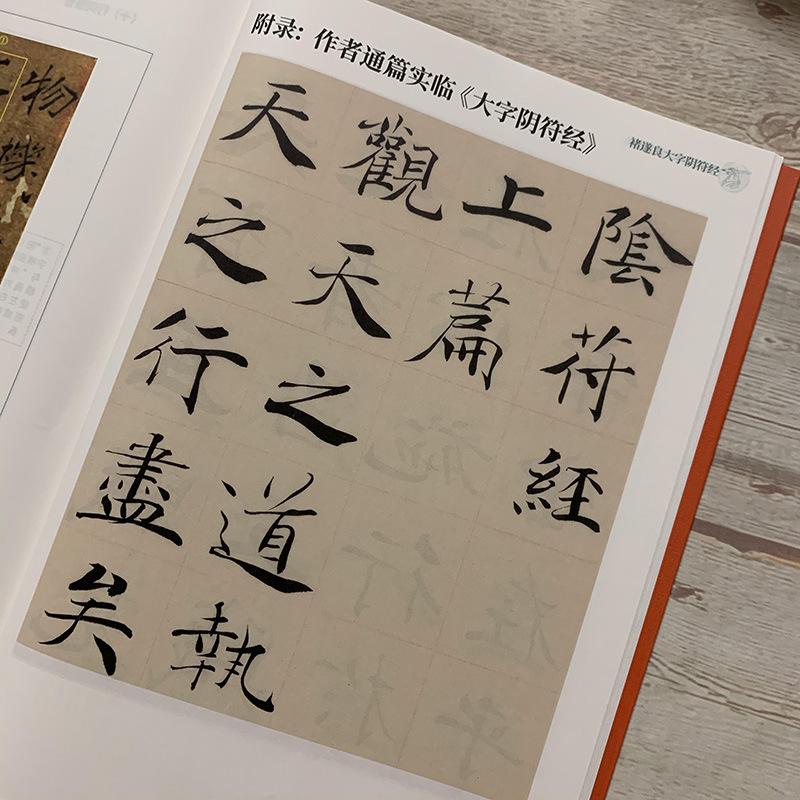 附录：作者通篇实临《大字阴符经》
褚遂良大字阴符经
陰符經
上篇
觀天之道執
天之行盡矣
物機